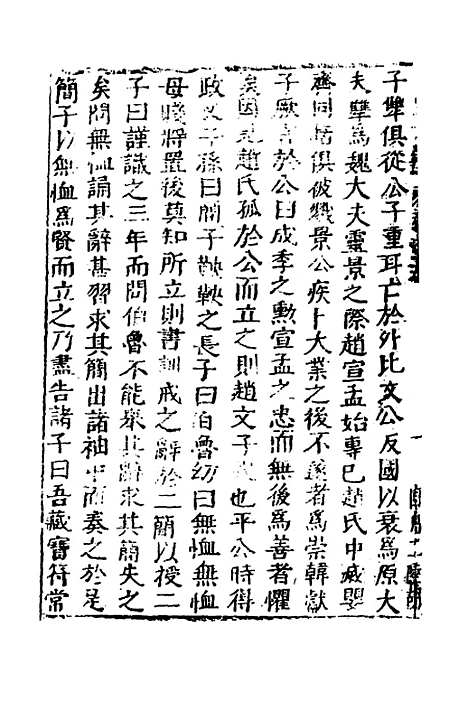 子犨俱從公子重耳亡於外比文公反國以衰為原大
夫犨為魏大夫靈景之際趙宣孟始專已趙氏中咸嬰
齊同括俱被戮景公疾卜大業之後不遂者為崇韓獻
子厥言於公曰成季之勲宣孟之忠而無後為善者懼
矣因見趙氏孤於公而立之則趙文子也平公時得
政文子孫曰簡子鞅鞅之長子曰伯魯幼曰無恤無恤
母賤將置後莫知所立則書訓戒之辭於二簡以授二
子曰謹識之三年而問伯魯不能舉其辭求其簡失之
矣問無恤誦其辭甚習求其簡出諸袖中而奏之於是
簡子以無恤為賢而立之乃盡告諸子曰吾藏寶符常